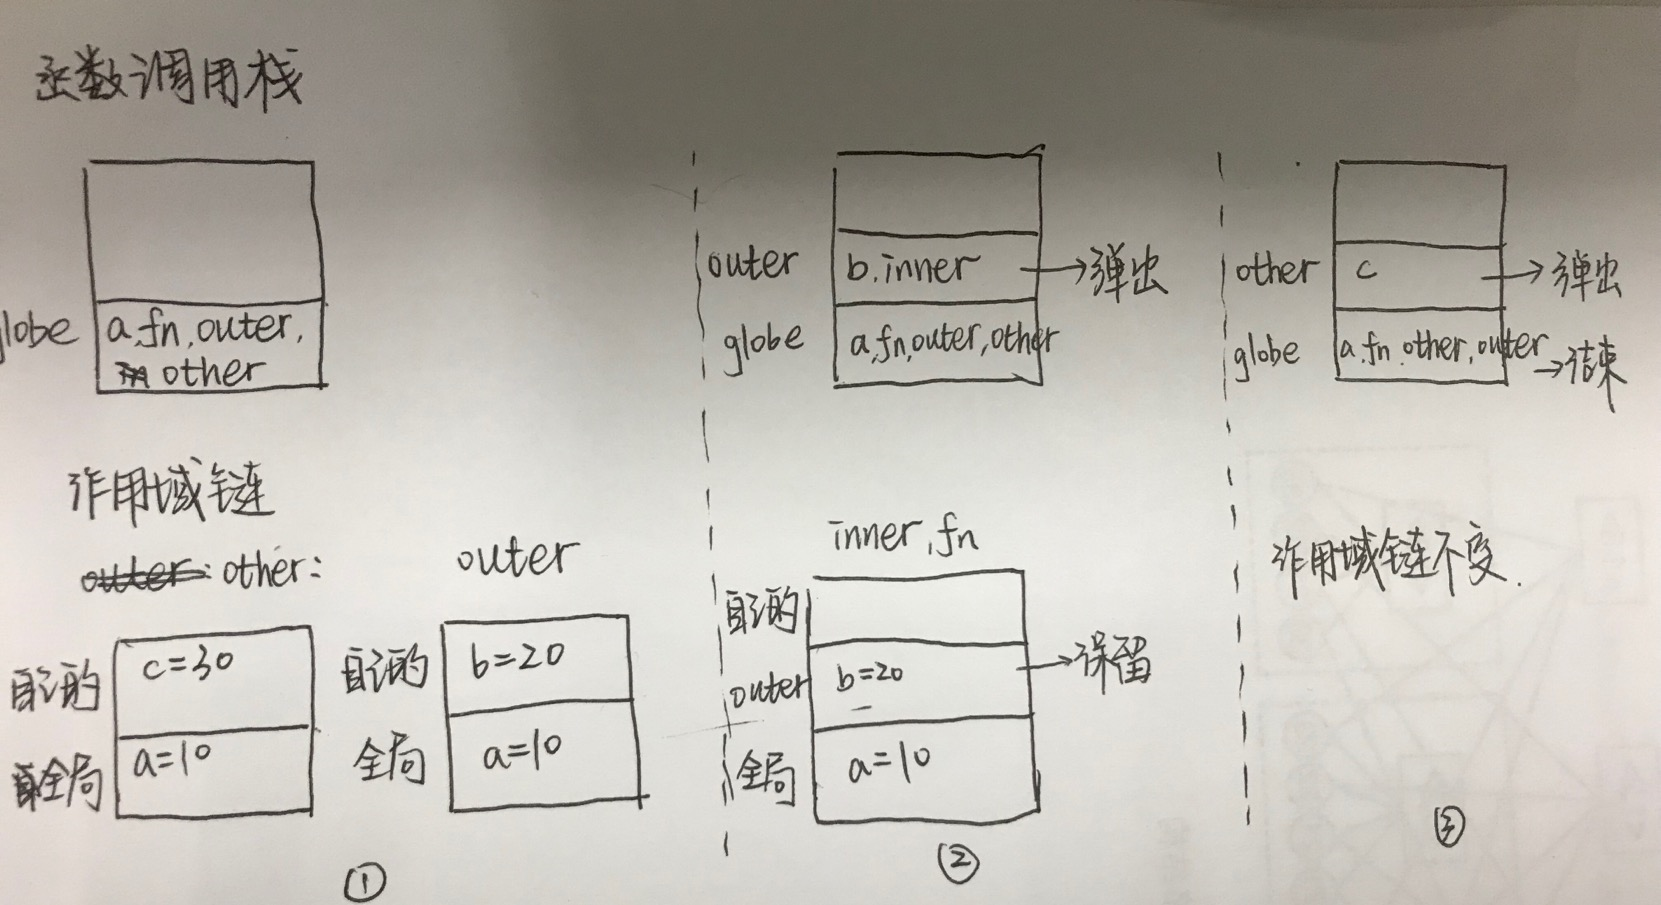 函数调用栈
globe
a,fn,outer,
other
作用域链
outer: other:
自己的
c=30
全局
a=10
outer
自己的
b=20
全局
a=10
①
outer
b,inner
→弹出
globe
a,fn,outer,other
inner,fn
自己的
outer
b=20
→保留
全局
a=10
②
other
c
→弹出
globe
a,fn,other,outer
→结束
作用域链不变.
③